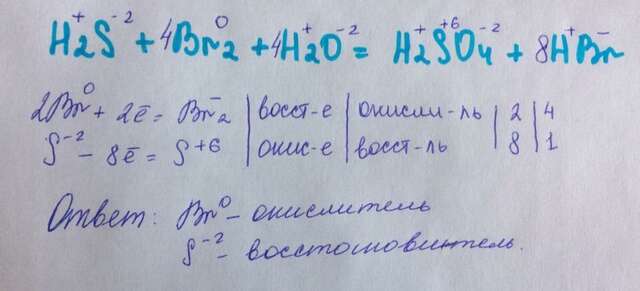 H₂⁺S⁻² + 4Br₂⁰ + 4H₂⁺O⁻² = H₂⁺S⁺⁶O₄⁻² + 8H⁺Br⁻
2Br⁰ + 2ē = Br⁻₂ | восст-е | окисли-ль | 2 | 4
S⁻² - 8ē = S⁺⁶ | окис-е | восст-ль | 8 | 1
Ответ: Br⁰ - окислитель
S⁻² - восстановитель.